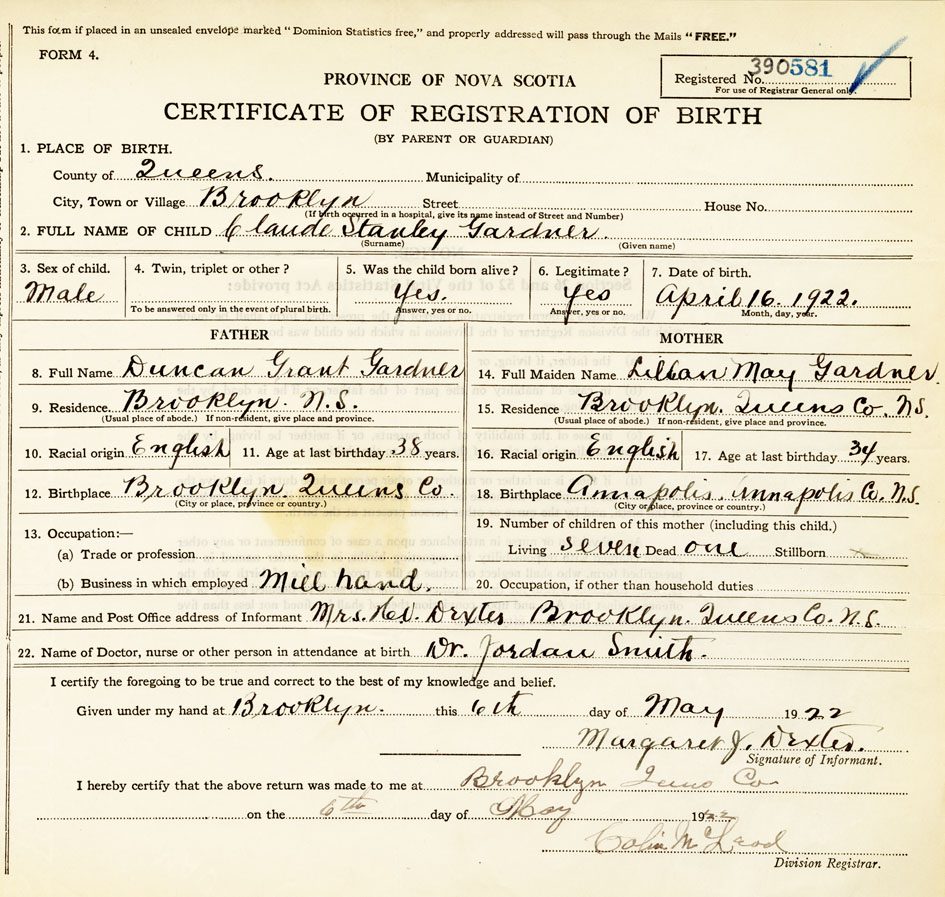 This form if placed in an unsealed envelope marked "Dominion Statistics free," and properly addressed will pass through the Mails "FREE."
FORM 4.
Registered No. 390581
For use of Registrar General only.
PROVINCE OF NOVA SCOTIA
CERTIFICATE OF REGISTRATION OF BIRTH
(BY PARENT OR GUARDIAN)
1. PLACE OF BIRTH.
County of Queens. Municipality of
City, Town or Village Brooklyn Street House No.
(If birth occurred in a hospital, give its name instead of Street and Number)
2. FULL NAME OF CHILD Claude Stanley Gardner.
(Surname) (Given name)
3. Sex of child. 4. Twin, triplet or other? 5. Was the child born alive? 6. Legitimate? 7. Date of birth.
Male Yes. Yes April 16. 1922.
To be answered only in the event of plural birth. Answer, yes or no. Answer, yes or no. Month, day, year.
FATHER
8. Full Name Duncan Grant Gardner
9. Residence. Brooklyn. N.S.
(Usual place of abode.) If non-resident, give place and province.
10. Racial origin English 11. Age at last birthday 38 years.
12. Birthplace Brooklyn. Queens Co.
(City or place, province or country.)
13. Occupation:—
(a) Trade or profession
(b) Business in which employed Mill hand.
MOTHER
14. Full Maiden Name Lillian May Gardner.
15. Residence Brooklyn. Queens Co. N.S.
(Usual place of abode.) If non-resident, give place and province.
16. Racial origin English 17. Age at last birthday 34 years.
18. Birthplace Annapolis. Annapolis Co. N.S.
(City or place, province or country.)
19. Number of children of this mother (including this child.)
Living seven Dead one Stillborn
20. Occupation, if other than household duties
21. Name and Post Office address of Informant Mrs. Dexter Brooklyn. Queens Co. N.S.
22. Name of Doctor, nurse or other person in attendance at birth Dr. Jordan Smith.
I certify the foregoing to be true and correct to the best of my knowledge and belief.
Given under my hand at Brooklyn. this 6th day of May 1922
Margaret J. Dexter.
Signature of Informant.
I hereby certify that the above return was made to me at Brooklyn Co
on the 6th day of May 1922
Colin McLeod
Division Registrar.